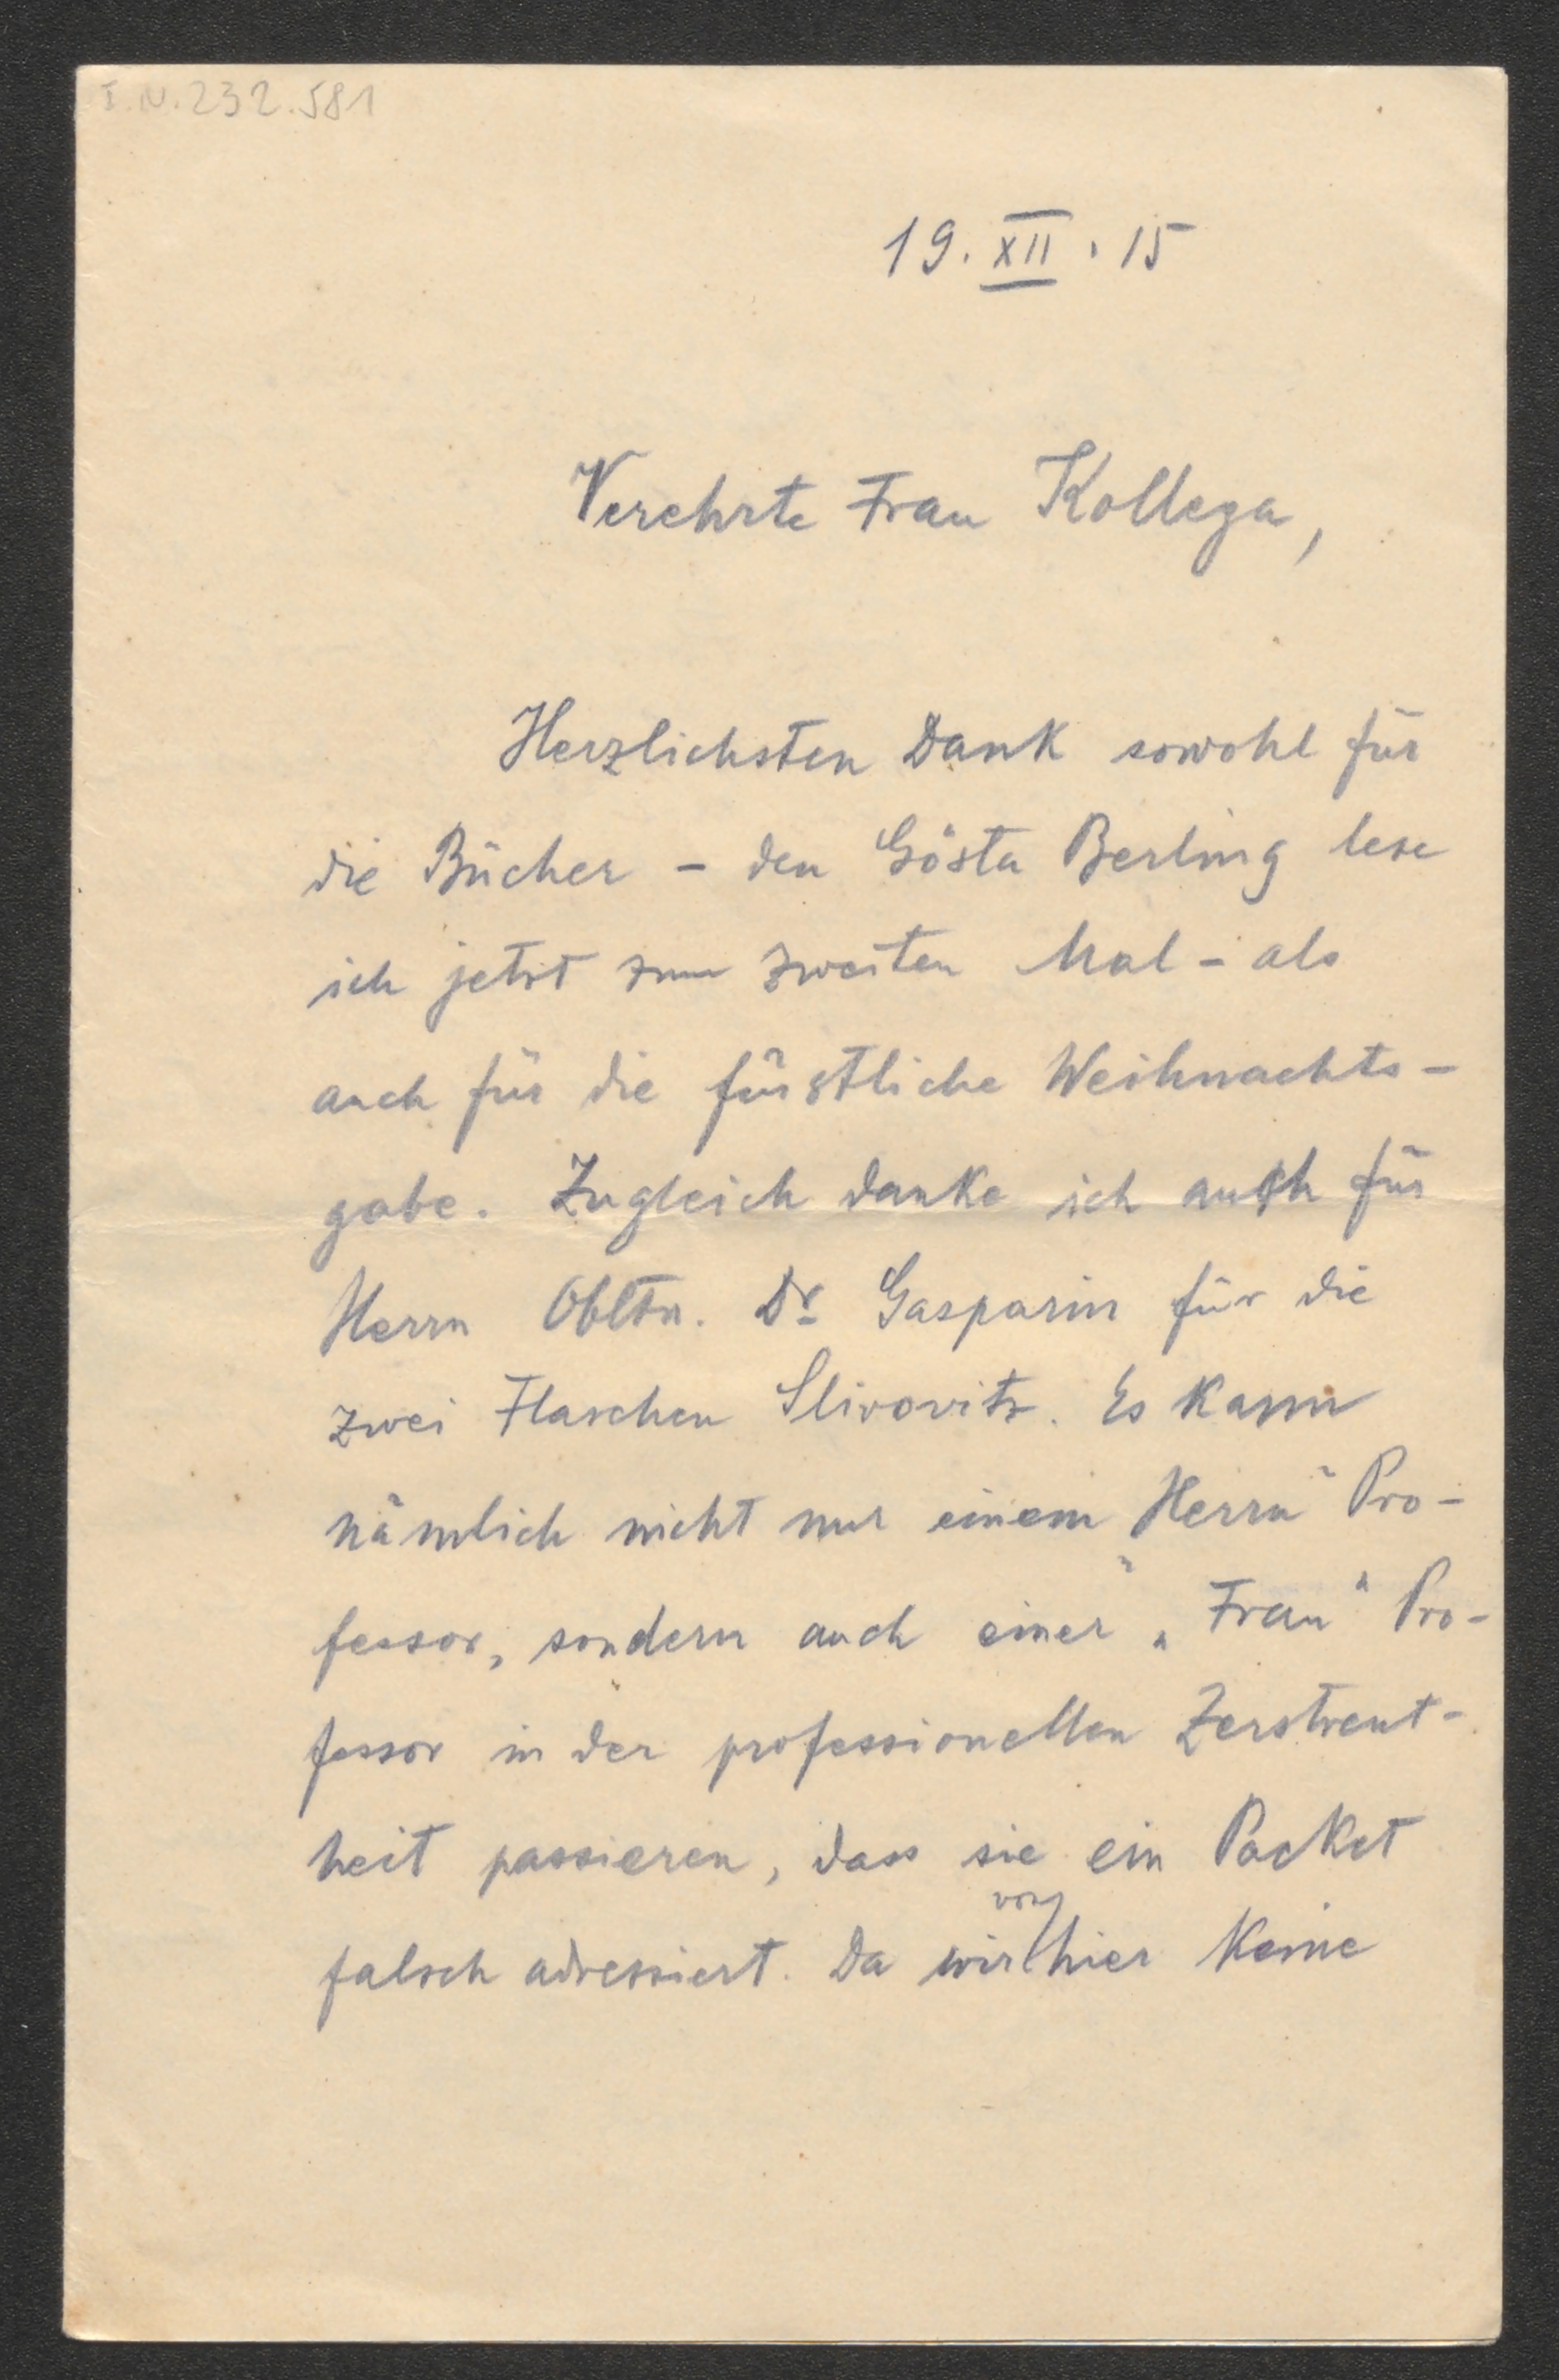 I.N.232.581
19. XII. 15
Verehrte Frau Kollega,
Herzlichsten Dank sowohl für
die Bücher – den Gösta Berling lese
ich jetzt zum zweiten Mal – als
auch für die fürstliche Weihnachts-
gabe. Zugleich danke ich auch für
Herrn Obltn. Dr Gasparin für die
zwei Flaschen Slivovitz. Es kann
nämlich nicht nur einem "Herrn" Pro-
fessor, sondern auch einer "Frau" Pro-
fessor in der professionellen Zerstreut-
heit passieren, dass sie ein Packet
falsch adressiert. Da wir von hier keine